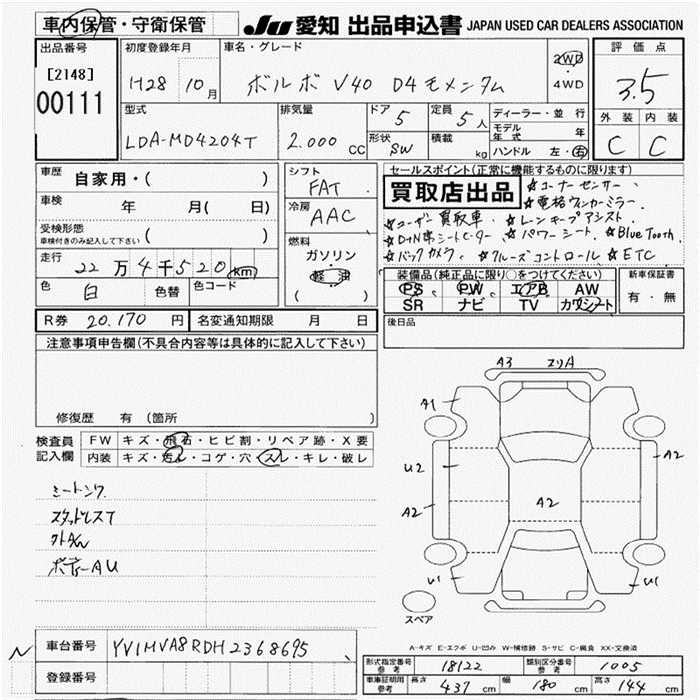 車内保管・守衛保管
JU 愛知 出品申込書 JAPAN USED CAR DEALERS ASSOCIATION
出品番号
[2148]
00111
初度登録年月
H28 10月
車名・グレード
ボルボ V40 D4モメンタム
2WD
4WD
評価点
3.5
外装 内装
C C
型式
LDA-MD4204T
排気量
2.000 CC
ドア 5
定員 5人
形状 SW
積載 kg
ディーラー・並行
モデル年式 年
ハンドル 左・右
車歴 自家用・( )
車検 年 月( 日)
受検形態
車検付きのみ記入して下さい ( )
走行 22万4千520km
色 白 色替 色コード
シフト
FAT
冷房
AAC
燃料
ガソリン
軽油
( )
セールスポイント(正常に機能するものに限ります)
買取店出品
☆コーナーセンサー
☆電格ウィンカーミラー
☆ユーザー買取車 ☆レーンキープアシスト
☆D+N席シートヒーター ☆パワーシート ☆Blue Tooth
☆バックカメラ ☆クルーズコントロール ☆ETC
装備品(純正品に限り○をつけてください)
PS PW エアB AW
SR ナビ TV カワシート
新車保証書
有・無
R券 20.170円 名変通知期限 月 日
後日品
注意事項申告欄(不具合内容等は具体的に記入して下さい)
修復歴 有 (箇所 )
検査員
記入欄
FW キズ・飛石・ヒビ割・リペア跡・X要
内装 キズ・汚れ・コゲ・穴・スレ・キレ・破レ
スタッドレスT
ボディーAU
A3 エリA
A1
U2
A2
A2
A2
U1
U1
スペア
A-キズ E-エクボ U-凹み W-補修跡 S-サビ C-腐食 XX-交換済
N 車台番号 YV1MVA8RDH2368695
登録番号
形式指定番号 参考 18122
類別区分番号 参考 1005
車庫証明用 参考 長さ 437 cm 幅 180 cm 高さ 144 cm